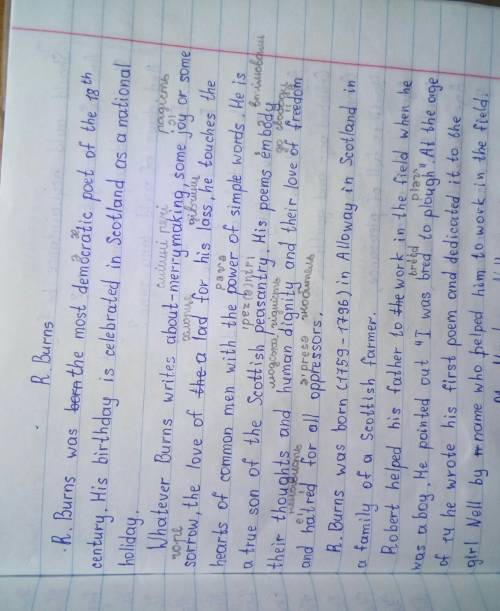 R. Burns
R. Burns was born the most democratic poet of the 18th
century. His birthday is celebrated in Scotland as a national
holiday.
радість
Whatever Burns writes about - merrymaking, some joy or some
горе хлопця дівчини
sorrow, the love of the a lad for his lass, he touches the
hearts of common men with the power of simple words. He is
a true son of the Scottish peasantry. His poems embody
людська гідність до свободи
their thoughts and human dignity and their love of freedom
ненависть гнобитель
and hatred for all oppressors.
R. Burns was born (1759-1796) in Alloway in Scotland in
a family of a Scottish farmer.
Robert helped his father to the work in the field when he
was a boy. He pointed out "I was bred to plough" At the age
of 14 he wrote his first poem and dedicated it to the
girl Nell by name who helped him to work in the field.